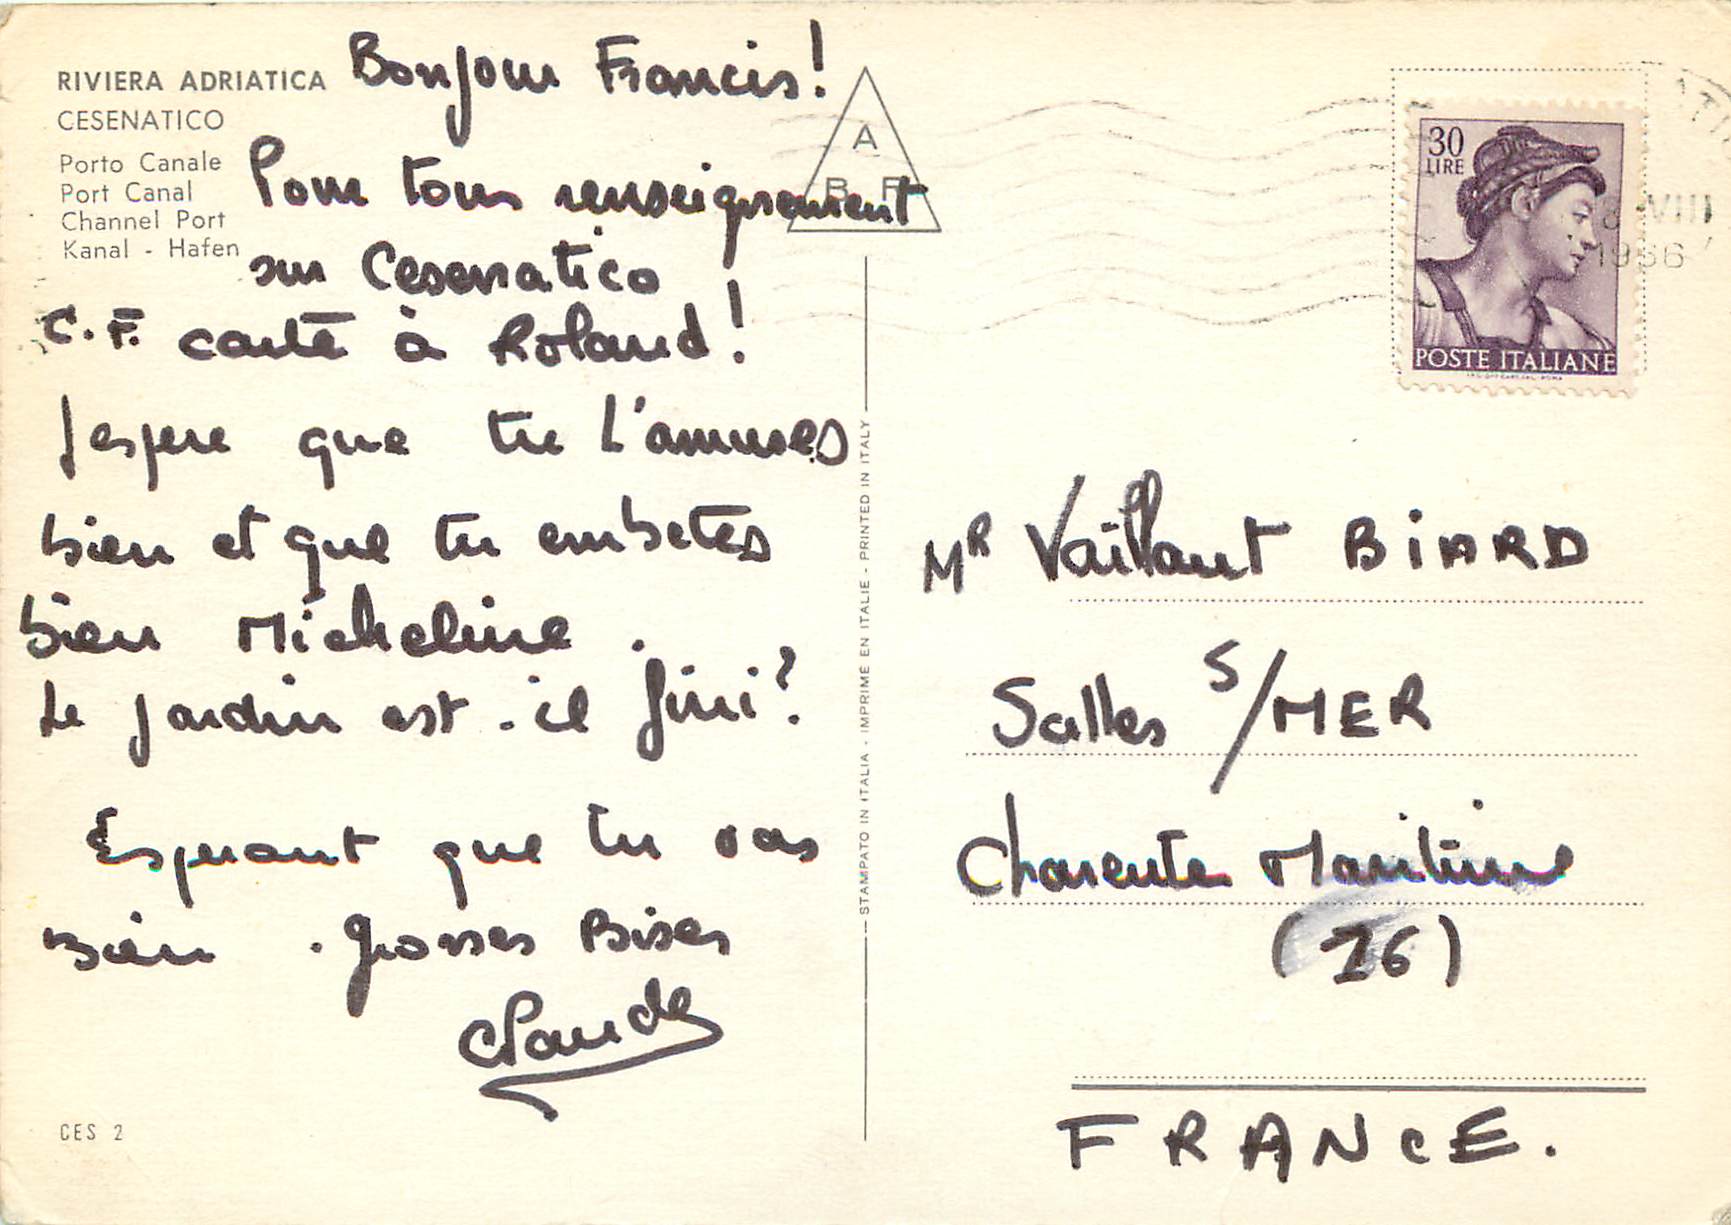 RIVIERA ADRIATICA
CESENATICO
Porto Canale
Port Canal
Channel Port
Kanal - Hafen
Bonjour Francis!
Pour tous renseignement
sur Cesenatico
C.F. carte à Roland!
J'espere que tu t'amuses
bien et que tu embetes
bien Micheline.
Le jardin est-il fini?
Esperant que tu vas
bien. Grosses Bises
Claude
CES 2
A
B F
STAMPATO IN ITALIA - IMPRIME EN ITALIE - PRINTED IN ITALY
30
LIRE
POSTE ITALIANE
VIII
1966
Mr Vaillant BiARD
Salles S/MER
Charente Maritime
(16)
FRANCE.